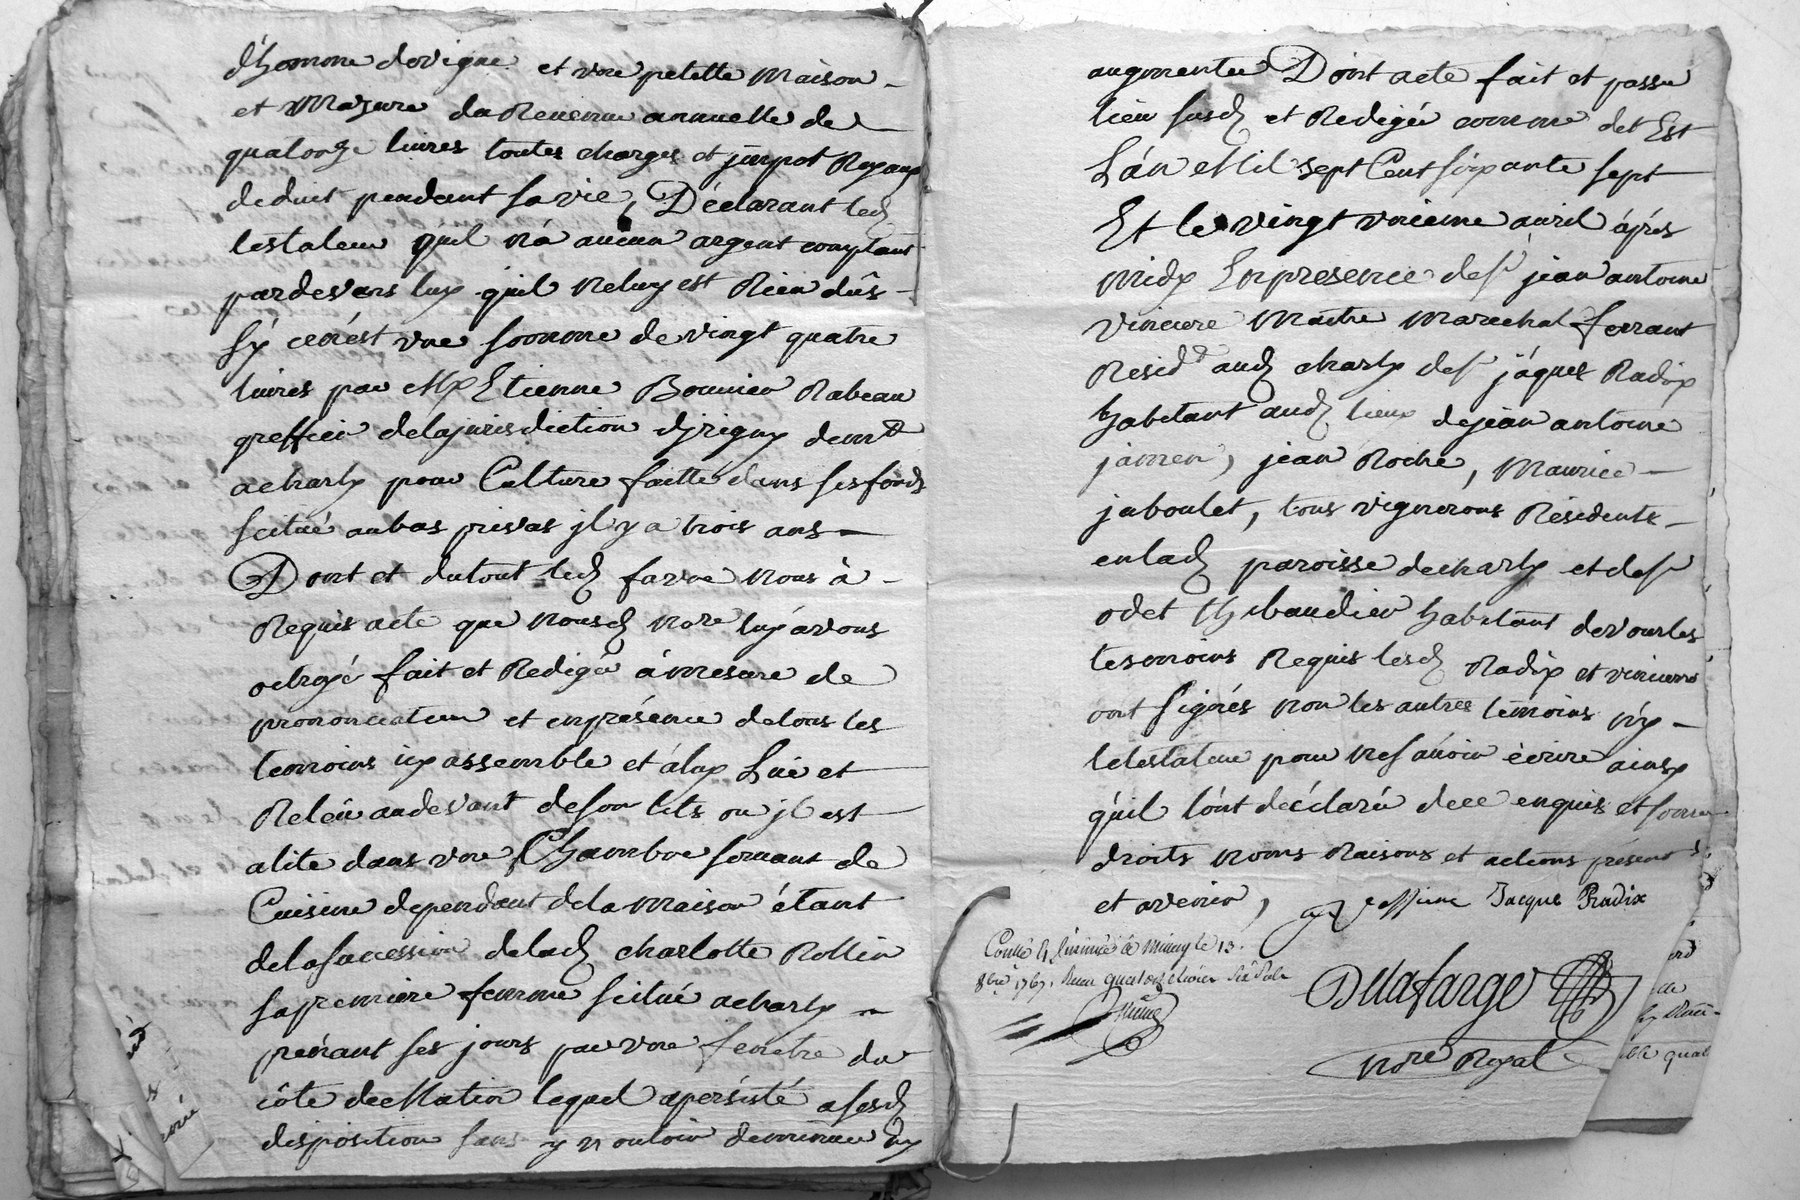 d'homme de vigne et une petitte maison
et mazure du Revenu annuelle de
quatorze livres toutes charges et jmpot Royaux
deduit pendant sa vie, Déclarant led
testateur quil n'á aucun argent comptant
pardevers luy quil ne luy est Rien dûs
sy ce n'est une somme de vingt quatre
livres par Me Etienne Bouvier Rabeau
greffier de la jurisdiction djrigny demt
a charly pour Culture faitte dans ses fonds
scitué au bas privas jl y a trois ans
Dont et du tout led farve nous à
Requis acte que nousd nore luy avons
octroyé fait et Redigé à mesure de
prononciation et en présence de tous les
temoins icy assemble et á luy Lu et
Releu au devant de son lits ou jl est
alité dans une Chambre servant de
Cuisine dependant de la maison étant
de la succession de lad charlotte Rollin
sa premiere femme scitué a charly
prenant ses jours par une fenetre du
côté de Matin lequel a persisté a sesd
disposition sans y vouloir diminuer ny
augmenter Dont acte fait et passé
lieu susd et Redigée comme det Est
L'án Mil sept Cent soixante sept
Et le vingt unieme avril áprés
midy En presence de sr jean antoine
vinciere maitre marechal ferrant
Residt aud charly de sr jáques Radix
habitant aud lieux de jean antoine
jamen, jean Roche, Maurice
jaboulet, tous vignerons Résidents
en lad paroisse de charly et de sr
odet thibaudier habitant de vourles
tesmoins Requis lesd Radix et vinciere
ont signés non les autres temoins ny
le testateur pour ne sçavoir écrire ainsy
qu'il l'ont déclaré de ce enquis et somé
droits noms Raisons et actions présents
et avenir, Jacque Radix
Collé à Millery le 13.
8bre 1767. Reçu quatorze
Dellafarge
nore Royal